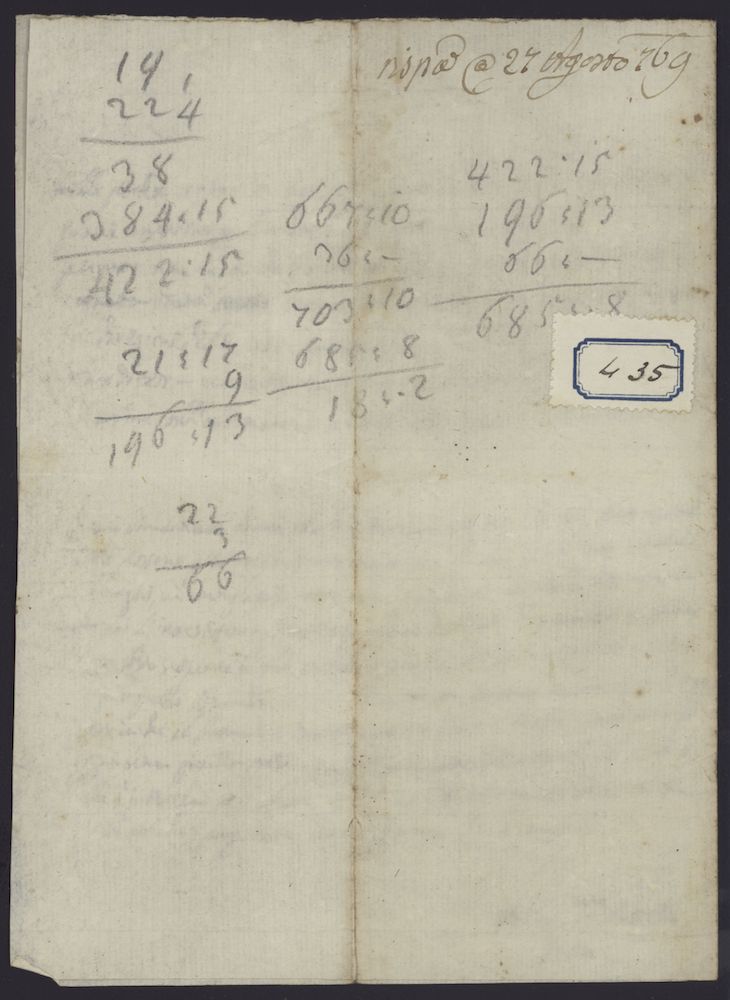 rispo @ 27 Agosto 769
19
22 4
38
384:15
422:15
21:17
9
196:13
22
3
66
667:10
36:—
703:10
685:8
18:2
422:15
196:13
66:—
685:8
435